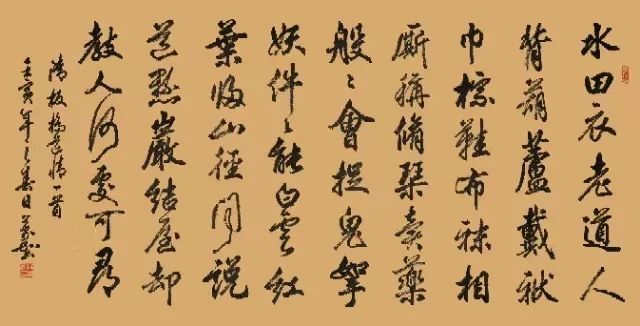 水田衣老道人
背葫蘆戴袱
巾棕鞋布袜相
厮稱脩琴賣藥
般〻會捉鬼拏
妖件〻能白雲紅
葉歸山徑聞説
道懸巖結屋却
教人何處可尋
清板橋道情一首
壬寅年之春日